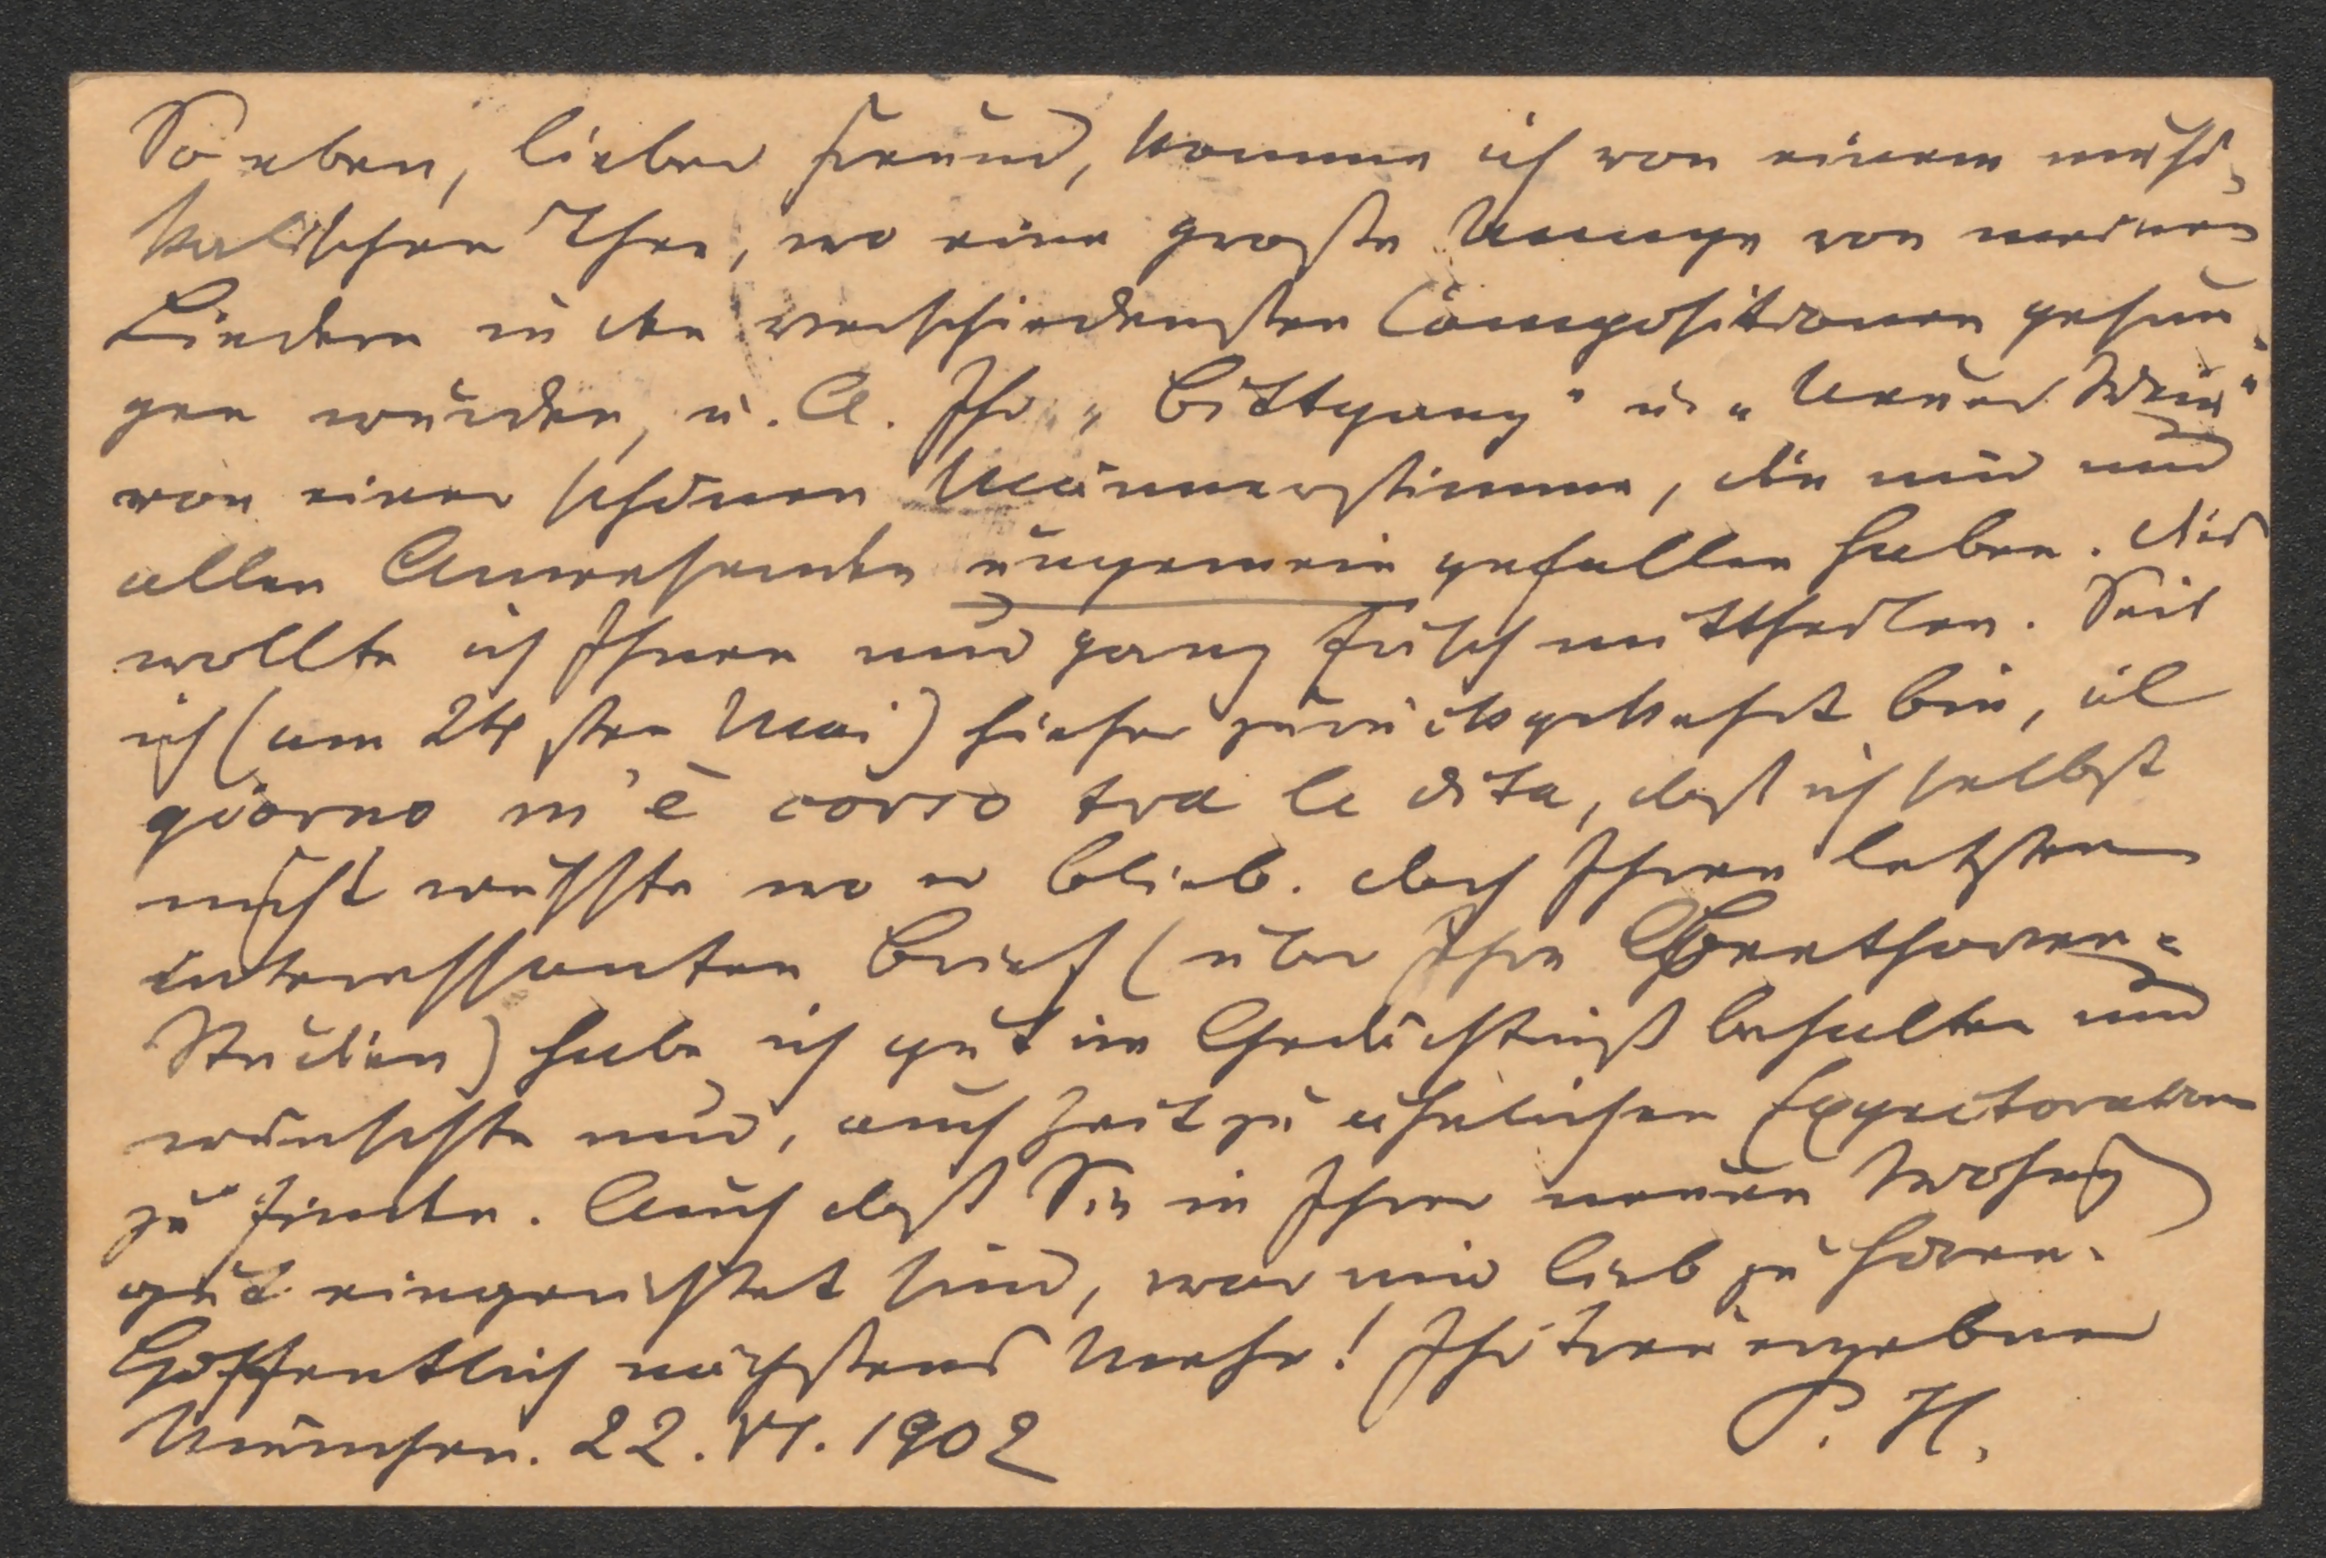 So eben, lieber Freund, komme ich von einem musi-
kalischen Thee, wo eine große Menge von meinen
Liedern in den verschiedensten Compositionen gesun-
gen wurden, u. A. Ihr „Bittgang“ u. „Neuer Wein“
von einer schönen Männerstimme, die mir und
allen Anwesenden ungemein gefallen haben. Dies
wollte ich Ihnen nur ganz frisch mittheilen. Seit
ich (am 24sten Mai) hieher zurückgekehrt bin, il
giorno m'è corso tra le dita, daß ich selbst
nicht wußte wo er blieb. Doch Ihren letzten
interessanten Brief (über Ihre Beethoven-
Studien) habe ich gut im Gedächtniß behalten und
wünschte nur, auch Zeit zu ähnlichen Expectorationen
zu finden. Auch daß Sie in Ihrer neuen Wohng
gut eingerichtet sind, war mir lieb zu hören.
Hoffentlich nächstens Mehr! Ihr treu ergebner
München. 22. VI. 1902 P. H.